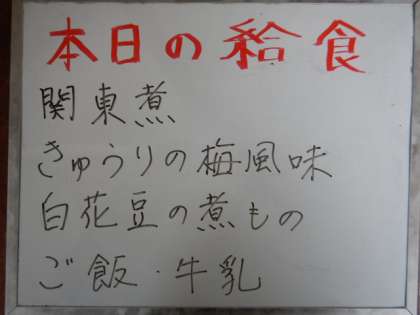 本日の給食
関東煮
きゅうりの梅風味
白花豆の煮もの
ご飯・牛乳